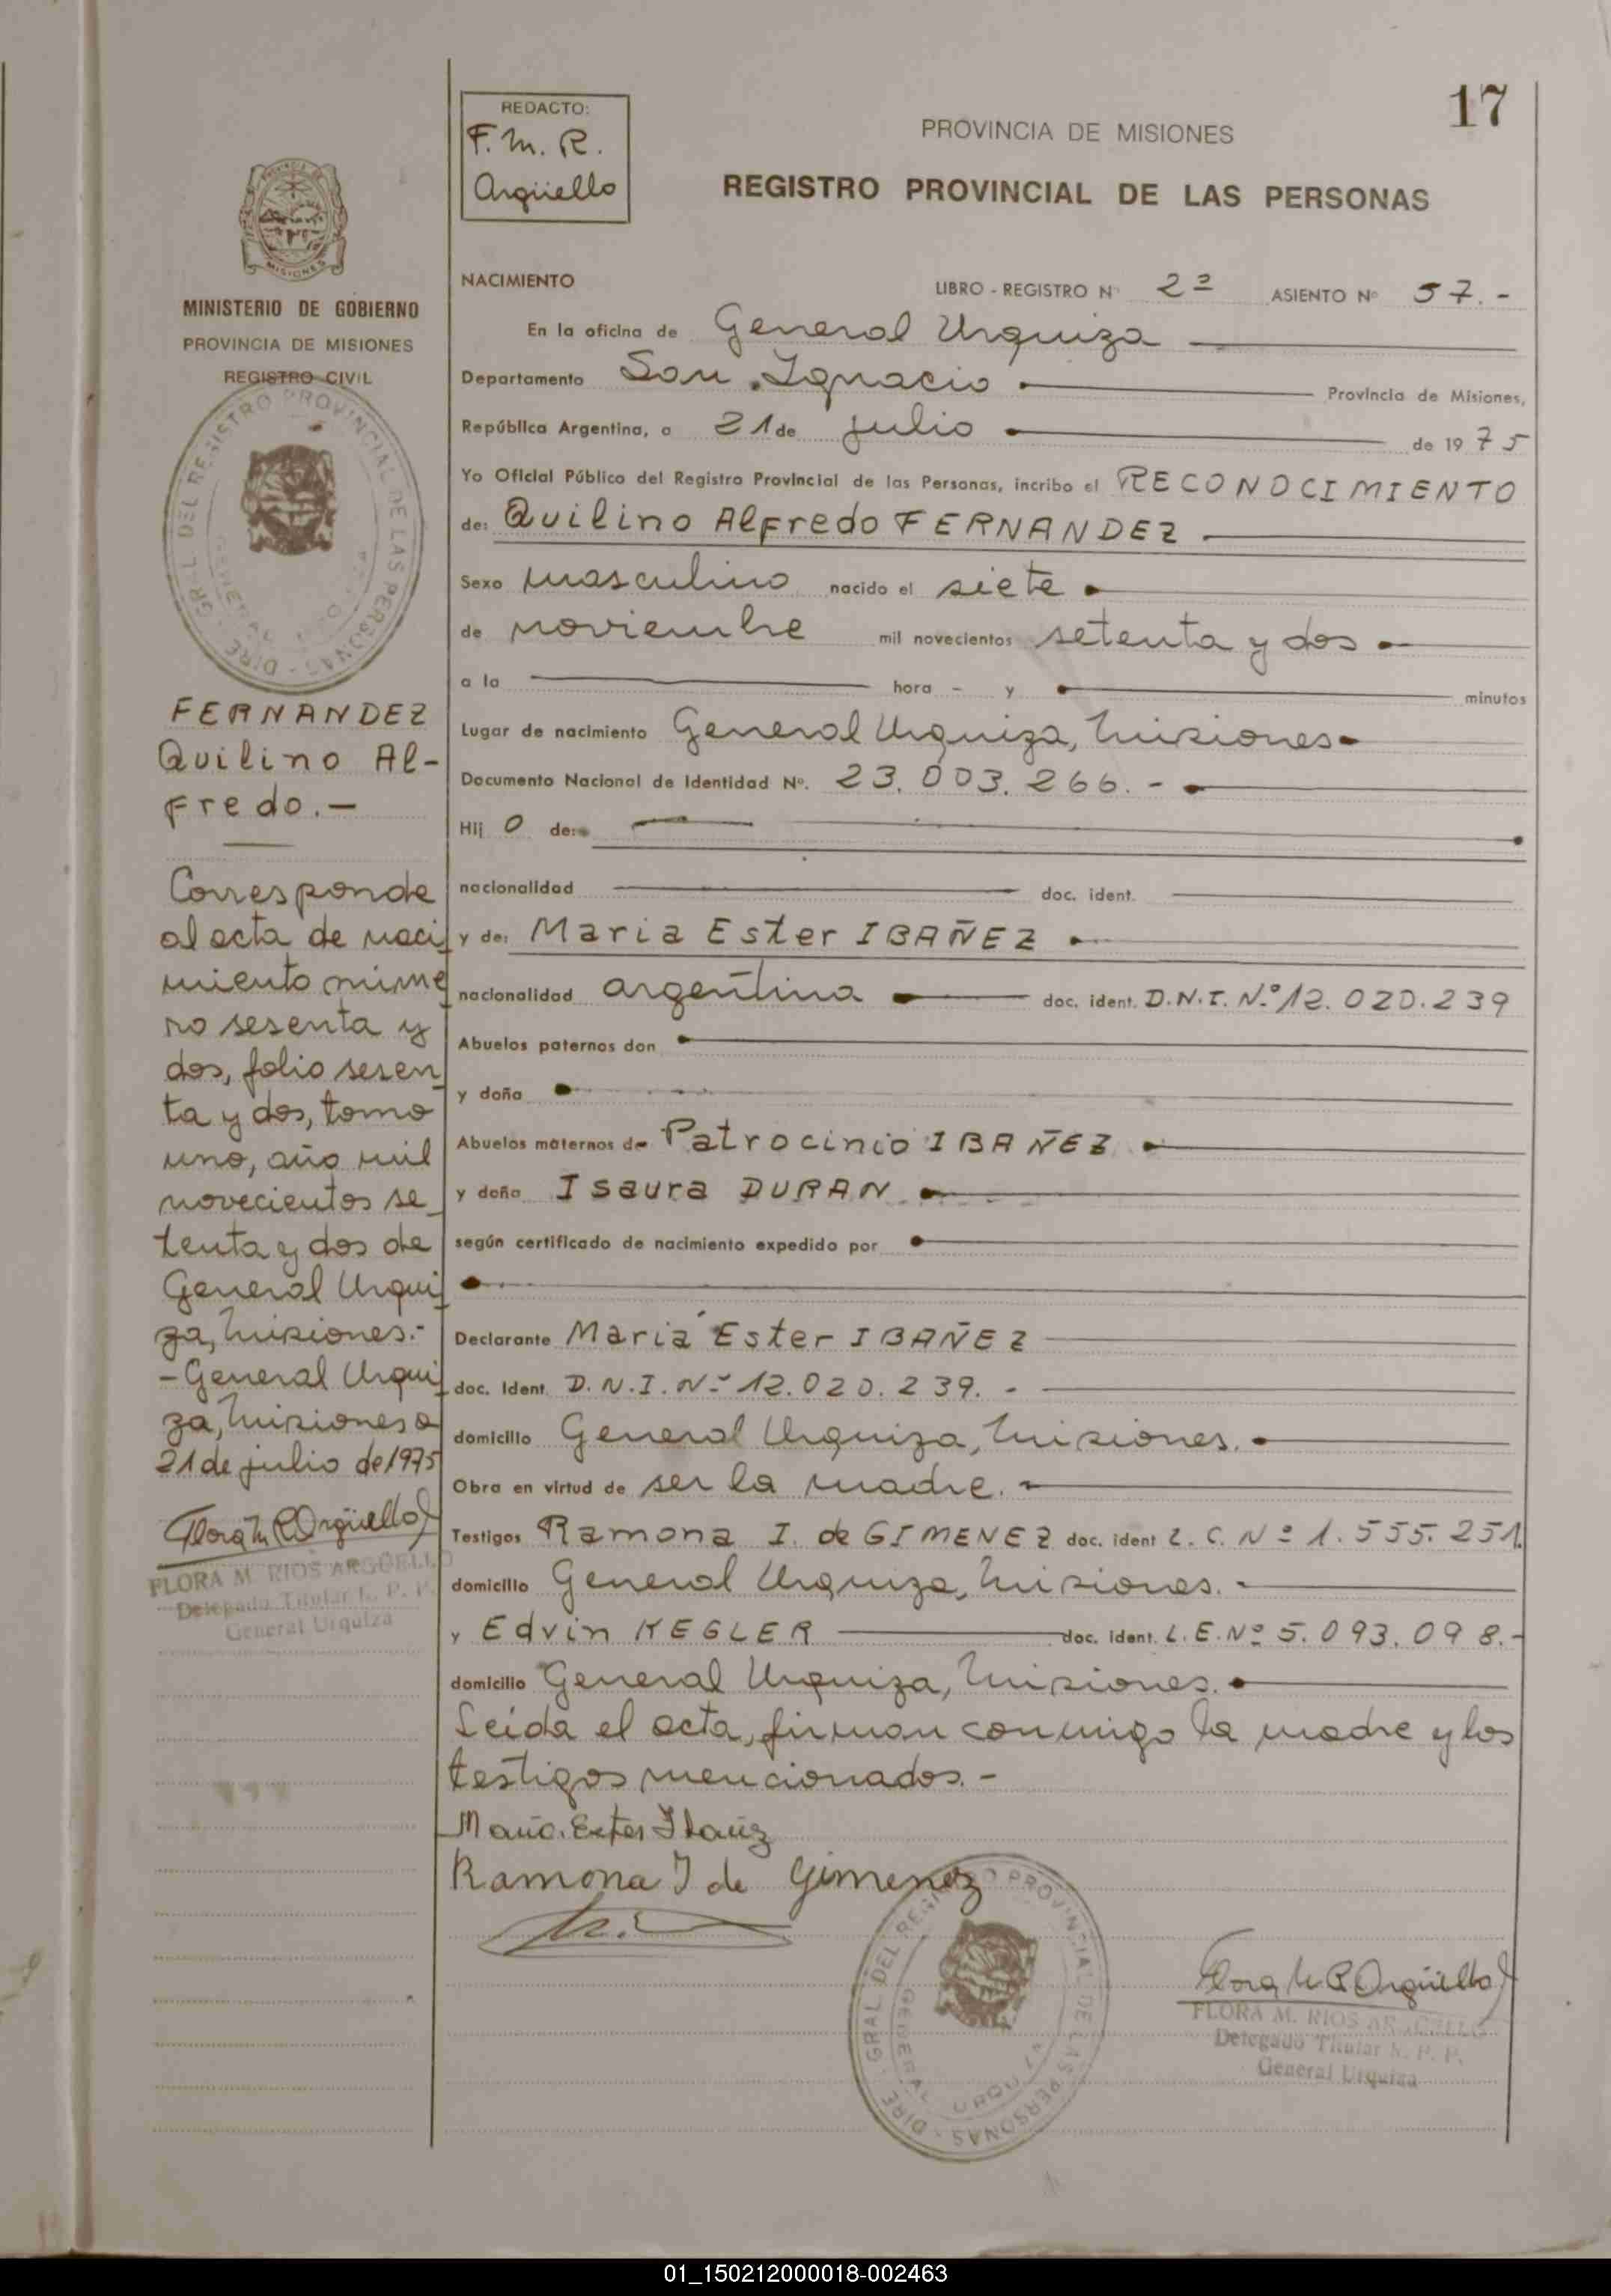 17
REDACTO:
F. M. R.
Argüello
PROVINCIA DE MISIONES
REGISTRO PROVINCIAL DE LAS PERSONAS
MISIONES
MINISTERIO DE GOBIERNO
PROVINCIA DE MISIONES
REGISTRO CIVIL
DIRE. GRAL DEL REGISTRO PROVINCIAL DE LAS PERSONAS
GENERAL
FERNANDEZ
Quilino Al-
fredo.-
Corresponde
al acta de naci
miento núme
ro sesenta y
dos, folio sesen
ta y dos, tomo
uno, año mil
novecientos se
tenta y dos de
General Urqui
za, Misiones.-
- General Urqui
za, Misiones a
21 de julio de 1975
Flora M R Argüello
FLORA M. RIOS ARGÜELLO
Delegado Titular R. P. P.
General Urquiza
NACIMIENTO LIBRO - REGISTRO N° 2º ASIENTO Nº 57.-
En la oficina de General Urquiza
Departamento San Ignacio Provincia de Misiones,
República Argentina, a 21 de julio de 1975
Yo Oficial Público del Registro Provincial de las Personas, incribo el RECONOCIMIENTO
de: Quilino Alfredo FERNANDEZ
Sexo masculino nacido el siete
de noviembre mil novecientos setenta y dos
a la hora - y minutos
Lugar de nacimiento General Urquiza, Misiones
Documento Nacional de Identidad Nº. 23.003.266.-
Hij o de:
nacionalidad doc. ident.
y de: Maria Ester IBAÑEZ
nacionalidad argentina doc. ident. D.N.I. N.º 12.020.239
Abuelos paternos don
y doña
Abuelos maternos de Patrocinio IBAÑEZ
y doña Isaura DURAN
según certificado de nacimiento expedido por
Declarante Maria Ester IBAÑEZ
doc. Ident. D.N.I. Nº 12.020.239.-
domicilio General Urquiza, Misiones.
Obra en virtud de ser la madre.
Testigos Ramona I. de GIMENEZ doc. ident L.C. Nº 1.555.251.
domicilio General Urquiza, Misiones.-
y Edvin KEGLER doc. ident. L.E. Nº 5.093.098.-
domicilio General Urquiza, Misiones.
Leída el acta, firman conmigo la madre y los
testigos mencionados.-
Maria Ester Ibañez
Ramona I de Gimenez
DIRE. GRAL DEL REGISTRO PROVINCIAL DE LAS PERSONAS
GENERAL URQUIZA
Flora M R Argüello
FLORA M. RIOS ARGÜELLO
Delegado Titular R. P. P.
General Urquiza
01_150212000018-002463